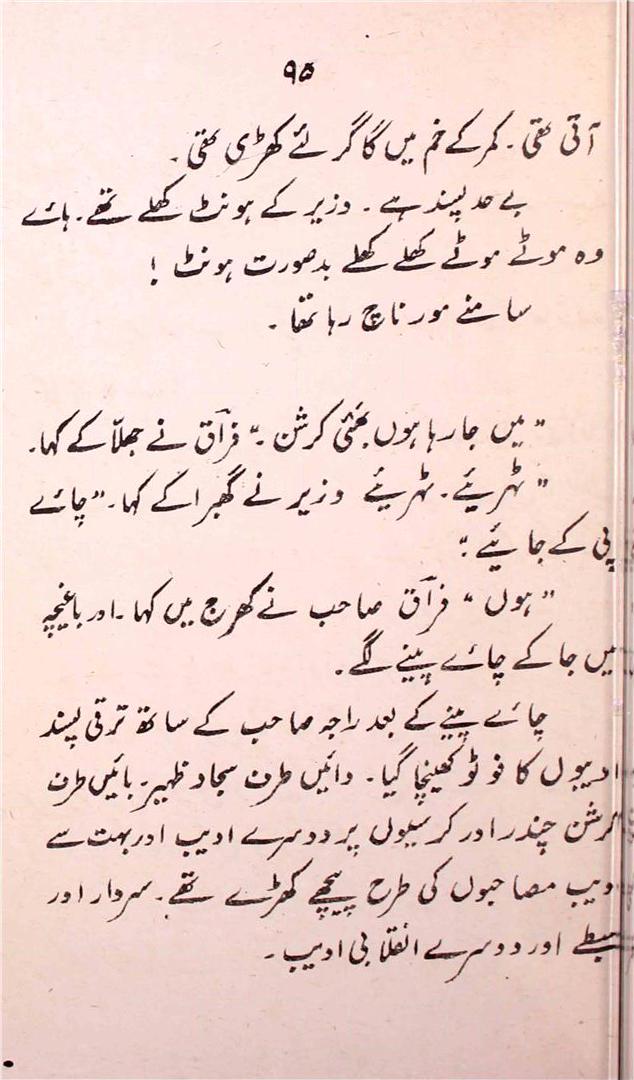 ۹۵
آتی تھی۔ کمر کے خم میں گاگر لئے کھڑی تھی۔
بے حد پسند ہے۔ وزیر کے ہونٹ کھلے تھے۔ ہائے
وہ موٹے موٹے کھلے کھلے بدصورت ہونٹ !
سامنے مور ناچ رہا تھا۔
"میں جا رہا ہوں بھئی کرشن۔" فراقؔ نے جھلّا کے کہا۔
"ٹہریئے۔ ٹہریئے وزیر نے گھبرا کے کہا۔ "چائے
پی کے جائیے"
"ہوں" فراقؔ صاحب نے کھرج میں کہا۔ اور باغیچہ
میں جا کے چائے پینے لگے۔
چائے پینے کے بعد راجہ صاحب کے ساتھ ترقی پسند
ادیبوں کا فوٹو کھینچا گیا۔ دائیں طرف سجاد ظہیر۔ بائیں طرف
کرشن چندر اور کرسیوں پر دوسرے ادیب اور بہت سے
ادیب مصاحبوں کی طرح پیچھے کھڑے تھے۔ سردار اور
سبطے اور دوسرے انقلابی ادیب۔